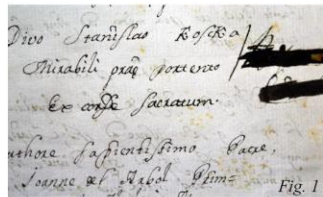 Divo Stanislao Kostka
Mirabili præ portento
Ex corde sacratum.
Authore sapientissimo Patre,
Joanne del Arbol
Fig. 1